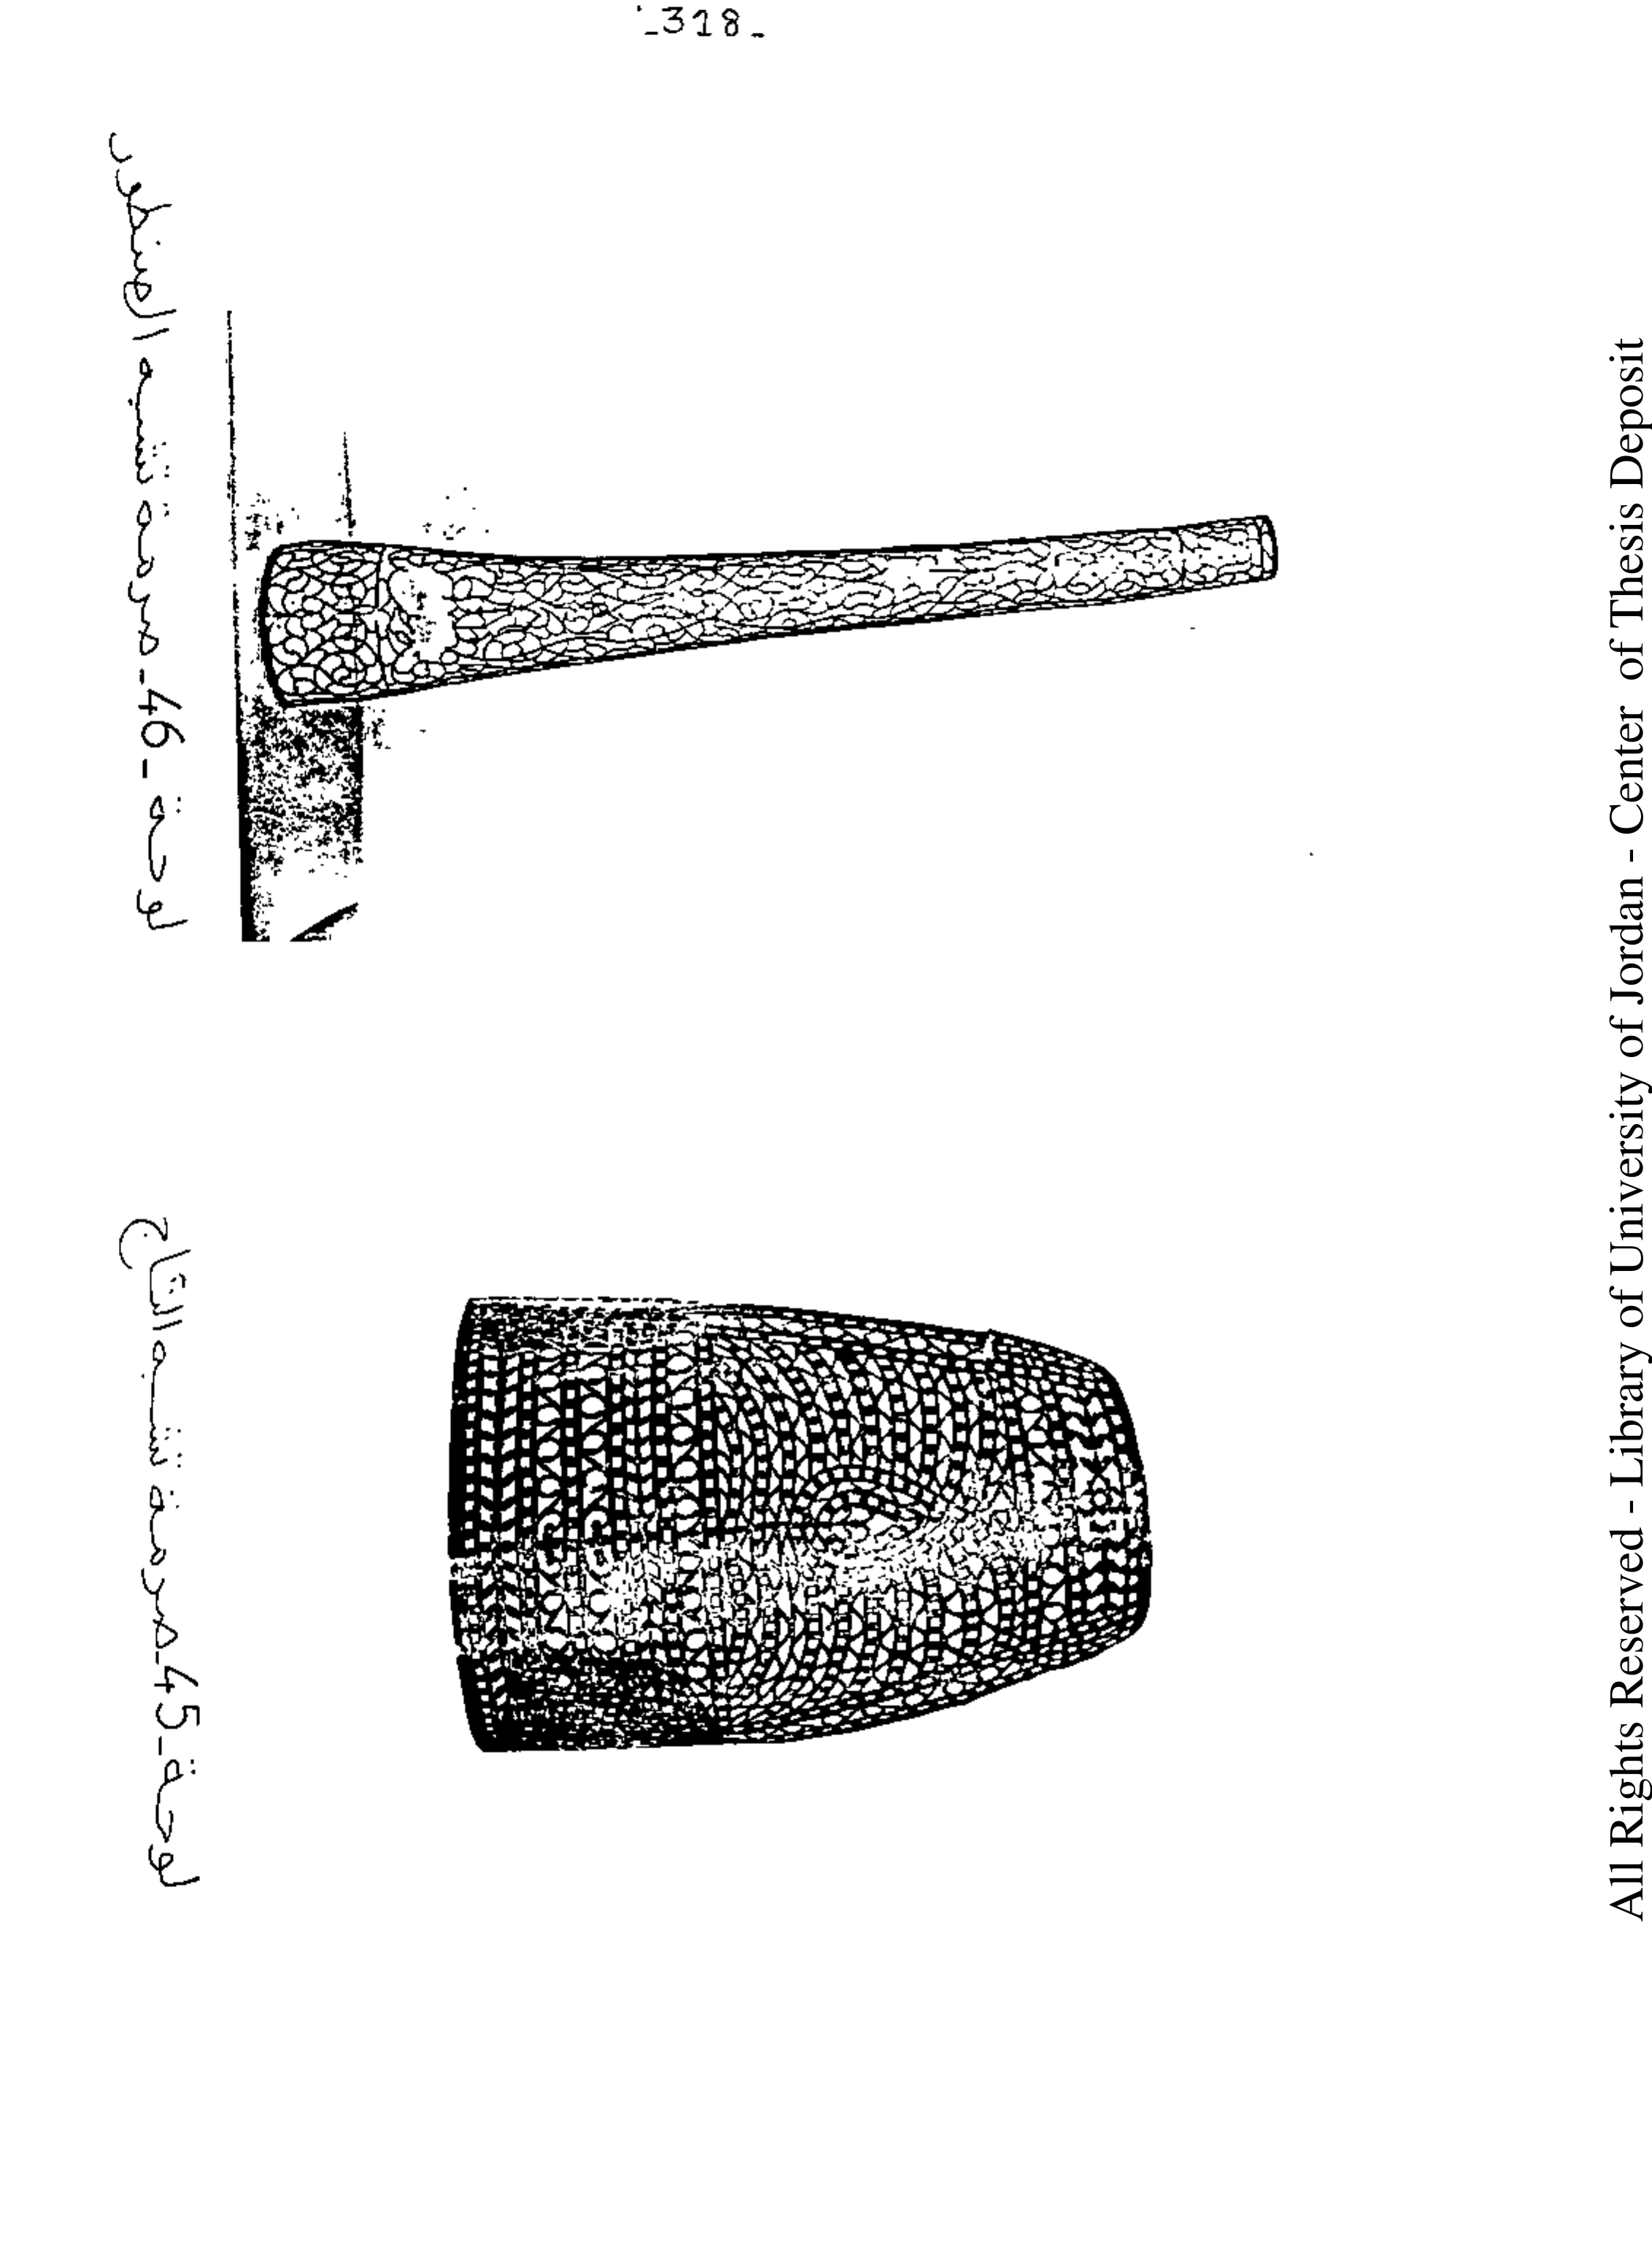 -318-
لوحة -45- صرمة تشبه التاج
لوحة -46- صرمة تشبه المنظور
All Rights Reserved - Library of University of Jordan - Center of Thesis Deposit